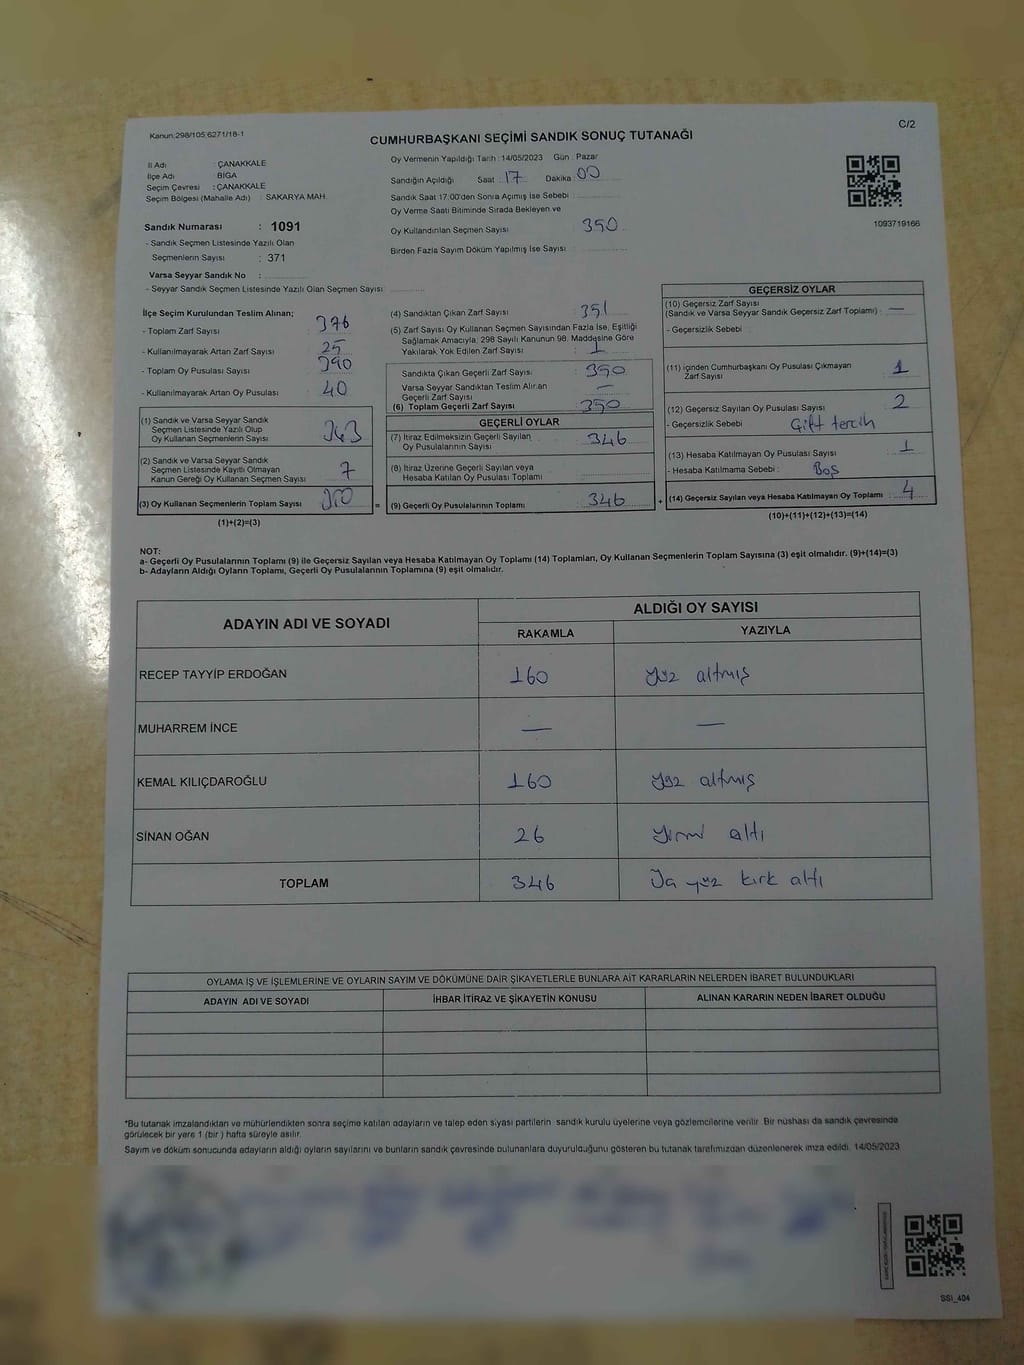 Kanun:298/105;6271/18-1
C/2
CUMHURBAŞKANI SEÇİMİ SANDIK SONUÇ TUTANAĞI
İl Adı : ÇANAKKALE
İlçe Adı : BİGA
Seçim Çevresi : ÇANAKKALE
Seçim Bölgesi (Mahalle Adı) : SAKARYA MAH
Sandık Numarası : 1091
- Sandık Seçmen Listesinde Yazılı Olan
Seçmenlerin Sayısı : 371
Varsa Seyyar Sandık No :
- Seyyar Sandık Seçmen Listesinde Yazılı Olan Seçmen Sayısı:
Oy Vermenin Yapıldığı Tarih :14/05/2023 Gün : Pazar
Sandığın Açıldığı Saat : 17 Dakika : 00
Sandık Saat 17:00'den Sonra Açımış İse Sebebi :
Oy Verme Saati Bitiminde Sırada Bekleyen ve
Oy Kullandırılan Seçmen Sayısı : 350
Birden Fazla Sayım Döküm Yapılmış İse Sayısı :
1093719166
İlçe Seçim Kurulundan Teslim Alınan;
- Toplam Zarf Sayısı : 376
- Kullanılmayarak Artan Zarf Sayısı : 25
- Toplam Oy Pusulası Sayısı : 390
- Kullanılmayarak Artan Oy Pusulası : 40
(1) Sandık ve Varsa Seyyar Sandık
Seçmen Listesinde Yazılı Olup
Oy Kullanan Seçmenlerin Sayısı : 343
(2) Sandık ve Varsa Seyyar Sandık
Seçmen Listesinde Kayıtlı Olmayan
Kanun Gereği Oy Kullanan Seçmen Sayısı : 7
(3) Oy Kullanan Seçmenlerin Toplam Sayısı : 350
(1)+(2)=(3)
(4) Sandıktan Çıkan Zarf Sayısı : 351
(5) Zarf Sayısı Oy Kullanan Seçmen Sayısından Fazla İse, Eşitliği
Sağlamak Amacıyla, 298 Sayılı Kanunun 98. Maddesine Göre
Yakılarak Yok Edilen Zarf Sayısı : 1
Sandıkta Çıkan Geçerli Zarf Sayısı : 350
Varsa Seyyar Sandıktan Teslim Alınan
Geçerli Zarf Sayısı : —
(6) Toplam Geçerli Zarf Sayısı : 350
GEÇERLİ OYLAR
(7) İtiraz Edilmeksizin Geçerli Sayılan
Oy Pusulalarının Sayısı : 346
(8) İtiraz Üzerine Geçerli Sayılan veya
Hesaba Katılan Oy Pusulası Toplamı :
= (9) Geçerli Oy Pusulalarının Toplamı : 346 +
GEÇERSİZ OYLAR
(10) Geçersiz Zarf Sayısı
(Sandık ve Varsa Seyyar Sandık Geçersiz Zarf Toplamı) : —
- Geçersizlik Sebebi :
(11) İçinden Cumhurbaşkanı Oy Pusulası Çıkmayan
Zarf Sayısı : 1
(12) Geçersiz Sayılan Oy Pusulası Sayısı : 2
- Geçersizlik Sebebi : Çift tercih
(13) Hesaba Katılmayan Oy Pusulası Sayısı : 1
- Hesaba Katılmama Sebebi : Boş
(14) Geçersiz Sayılan veya Hesaba Katılmayan Oy Toplamı : 4
(10)+(11)+(12)+(13)=(14)
NOT:
a- Geçerli Oy Pusulalarının Toplamı (9) ile Geçersiz Sayılan veya Hesaba Katılmayan Oy Toplamı (14) Toplamları, Oy Kullanan Seçmenlerin Toplam Sayısına (3) eşit olmalıdır. (9)+(14)=(3)
b- Adayların Aldığı Oyların Toplamı, Geçerli Oy Pusulalarının Toplamına (9) eşit olmalıdır.
ADAYIN ADI VE SOYADI
ALDIĞI OY SAYISI
RAKAMLA YAZIYLA
RECEP TAYYİP ERDOĞAN 160 yüz altmış
MUHARREM İNCE — —
KEMAL KILIÇDAROĞLU 160 yüz altmış
SİNAN OĞAN 26 yirmi altı
TOPLAM 346 Üç yüz kırk altı
OYLAMA İŞ VE İŞLEMLERİNE VE OYLARIN SAYIM VE DÖKÜMÜNE DAİR ŞİKAYETLERLE BUNLARA AİT KARARLARIN NELERDEN İBARET BULUNDUKLARI
ADAYIN ADI VE SOYADI İHBAR İTİRAZ VE ŞİKAYETİN KONUSU ALINAN KARARIN NEDEN İBARET OLDUĞU
*Bu tutanak imzalandıktan ve mühürlendikten sonra seçime katılan adayların ve talep eden siyasi partilerin sandık kurulu üyelerine veya gözlemcilerine verilir. Bir nüshası da sandık çevresinde
görülecek bir yere 1 (bir) hafta süreyle asılır.
Sayım ve döküm sonucunda adayların aldığı oyların sayılarını ve bunların sandık çevresinde bulunanlara duyurulduğunu gösteren bu tutanak tarafımızdan düzenlenerek imza edildi. 14/05/2023
SSI_404